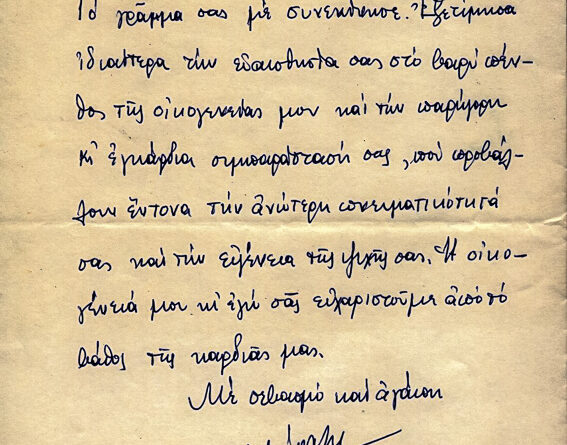 Τό γράμμα σας μέ συνεκίνησε. Ἐξετίμησα
ἰδιαίτερα τήν εὐαισθησία σας στό βαρύ πέν-
θος τῆς οἰκογενείας μου καί τήν παρήγορη
κι' ἐγκάρδια συμπαράστασή σας, πού προβάλ-
λουν ἔντονα τήν ἀνώτερη πνευματικότητά
σας καί τήν εὐγένεια τῆς ψυχῆς σας. Ἡ οἰκο-
γένειά μου κι' ἐγώ σᾶς εὐχαριστοῦμε ἀπό τό
βάθος τῆς καρδιᾶς μας.
Μέ σεβασμό καί ἀγάπη